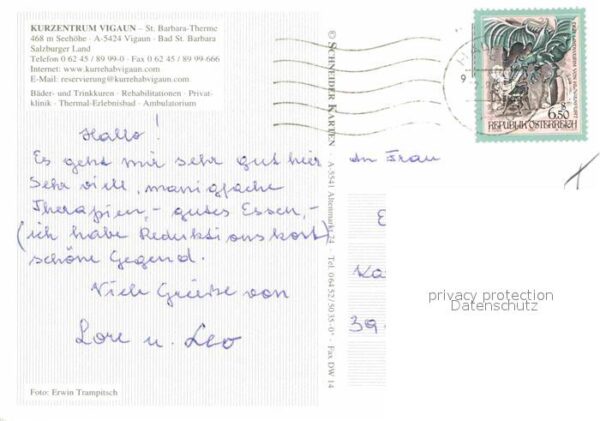 KURZENTRUM VIGAUN – St. Barbara-Therme
468 m Seehöhe · A-5424 Vigaun · Bad St. Barbara
Salzburger Land
Telefon 0 62 45 / 89 99-0 · Fax 0 62 45 / 89 99-666
Internet: www.kurrehabvigaun.com
E-Mail: reservierung@kurrehabvigaun.com
Bäder- und Trinkkuren · Rehabilitationen · Privat-
klinik · Thermal-Erlebnisbad · Ambulatorium
Hallo!
Es geht mir sehr gut hier
Sehr viele, manigfache
Therapien, - gutes Essen, -
(ich habe Reduktionskost)
schöne Gegend.
Viele Grüße von
Lore u. Leo
Foto: Erwin Trampitsch
© SCHNEIDER KARTEN · A-5541 Altenmarkt 24 · Tel. 0 64 52 / 50 35-0* · Fax DW 14
6.50
REPUBLIK ÖSTERREICH
An Frau
E
Ka
39
privacy protection
Datenschutz